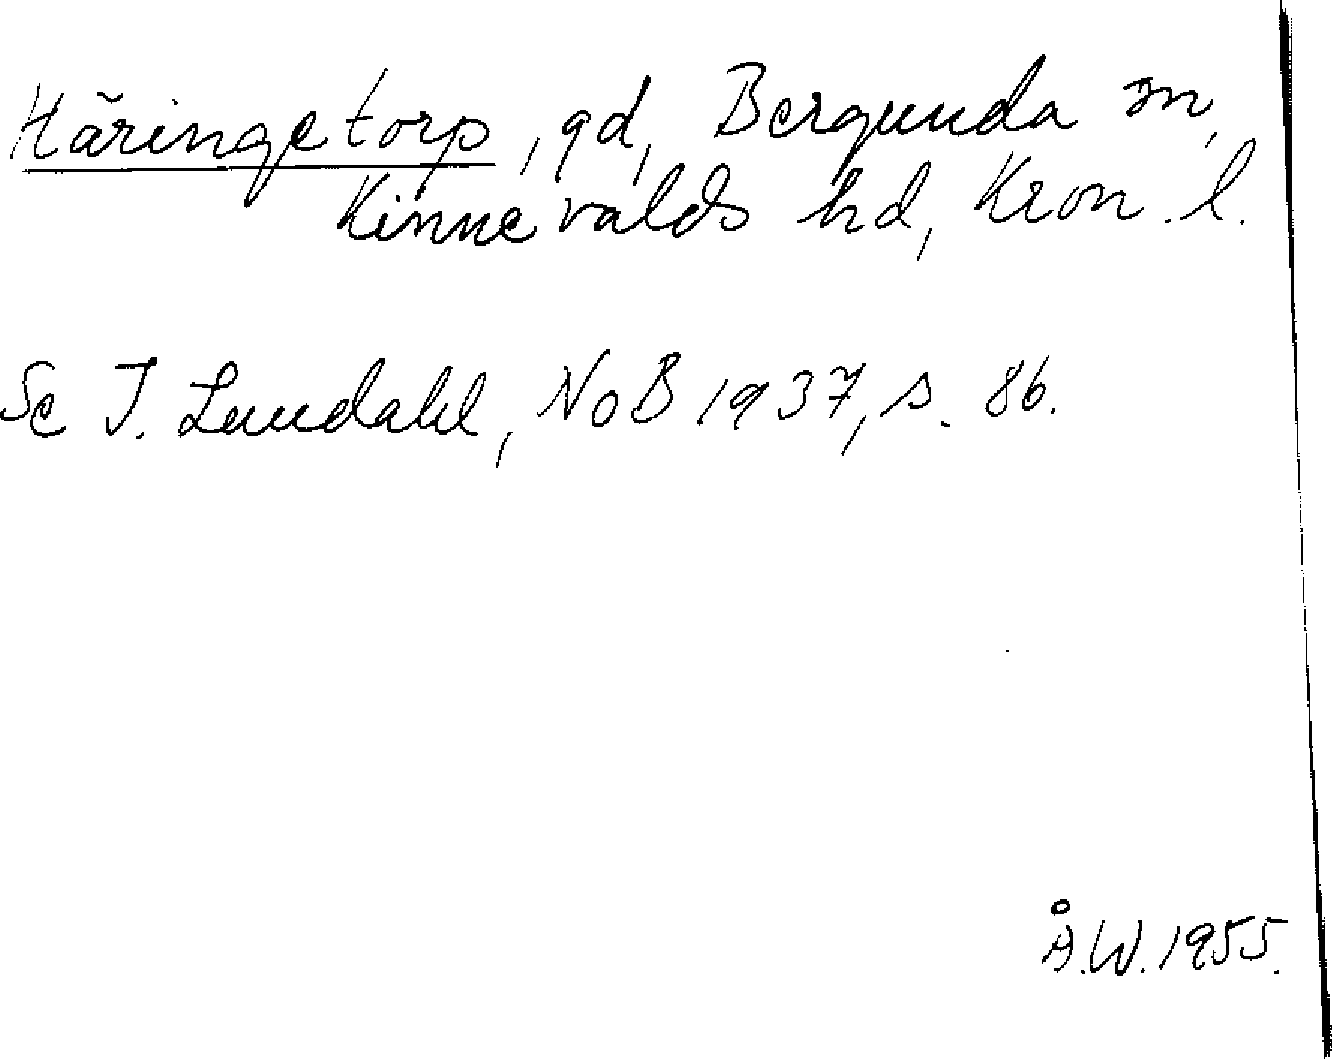 Häringetorp, gd, Bergunda sn,
Kinnevalds hd, Kron. l.
Se I. Lundahl, NoB 1937, s. 86.
Å.W. 1955.